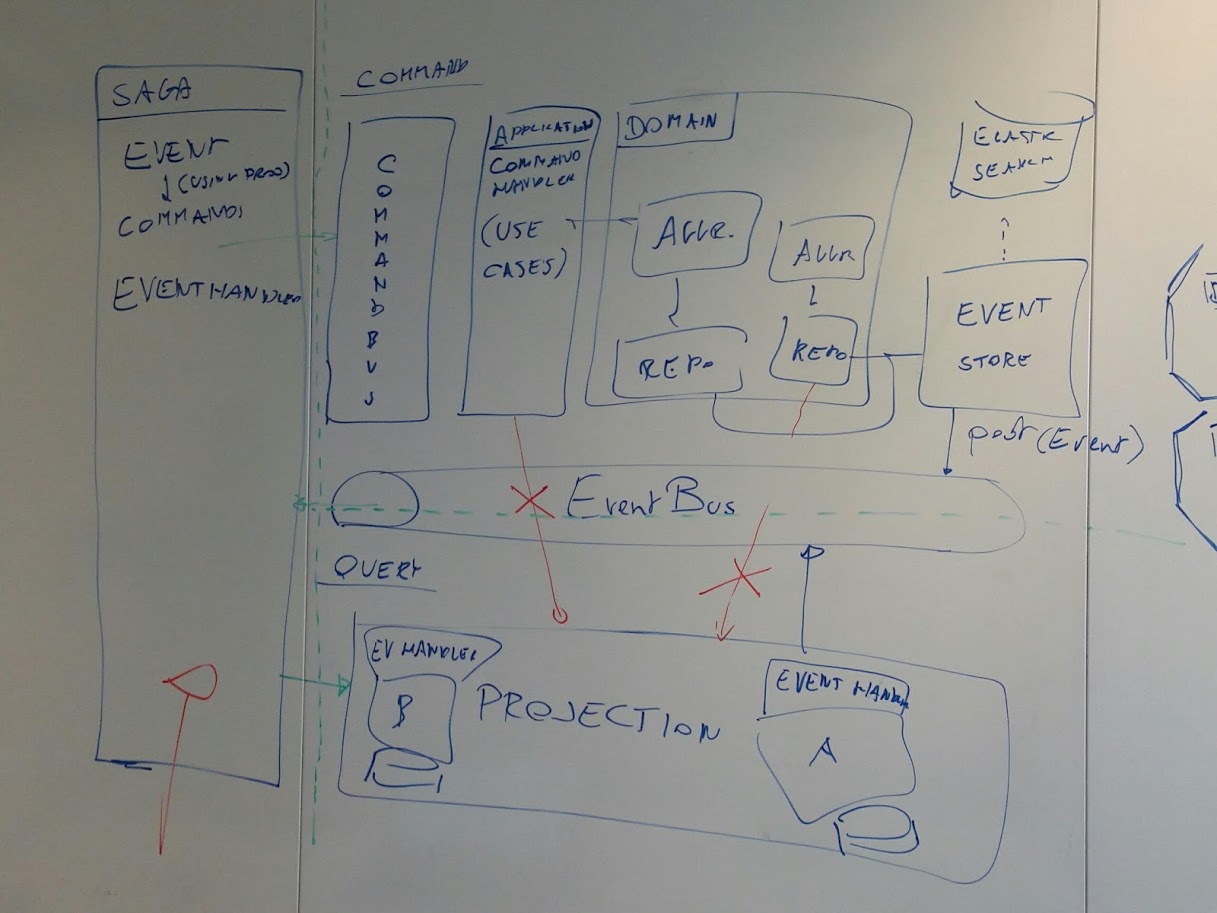 SAGA
EVENT
(USING PROJ)
COMMANDS
EVENT HANDLER
COMMAND
COMMAND BUS
APPLICATION
COMMAND
HANDLER
(USE
CASES)
DOMAIN
AGGR.
REPO
AGGR
REPO
ELASTIC
SEARCH
EVENT
STORE
post(Event)
Event Bus
QUERY
EV HANDLER
B
PROJECTION
EVENT HANDLER
A